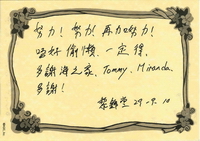 努力！努力！再加努力！
唔好偷懶、一定得、
多謝海之家、Tommy, Miranda
多謝！
29-9-10